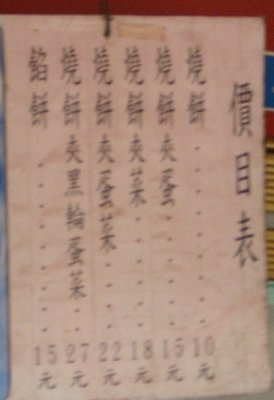 價目表
燒餅 10元
燒餅夾蛋 15元
燒餅夾菜 18元
燒餅夾蛋菜 22元
燒餅夾黑輪蛋菜 27元
餡餅 15元